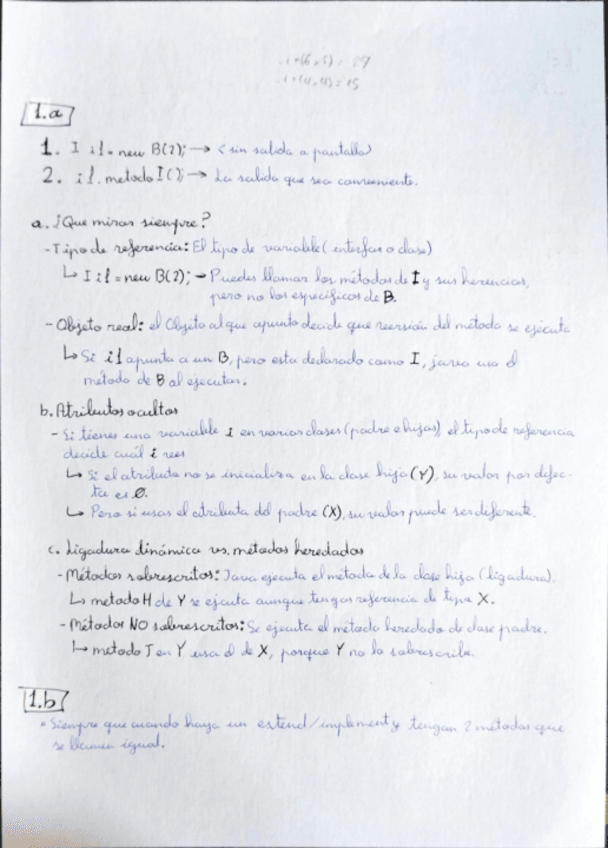 1.a
1. I i1 = new B(2); → <sin salida a pantalla>
2. i1.metodoI(); → La salida que sea conveniente.
a. ¿Que mirar siempre?
- Tipo de referencia: El tipo de variable (interfaz o clase)
↳ I i1 = new B(2); → Puedes llamar los métodos de I y sus herencias,
pero no los específicos de B.
- Objeto real: el Objeto al que apunta decide que versión del método se ejecuta
↳ Si i1 apunta a un B, pero esta declarado como I, java usa el
método de B al ejecutar.
b. Atributos ocultos
- Si tienes una variable i en varias clases (padre e hijas), el tipo de referencia
decide cuál i ves
↳ Si el atributo no se inicializa en la clase hija (Y), su valor por defec-
to es 0.
↳ Pero si usas el atributo del padre (X), su valor puede ser diferente.
c. Ligadura dinámica vs. métodos heredados
- Métodos sobrescritos: Java ejecuta el método de la clase hija (ligadura).
↳ metodo H de Y se ejecuta aunque tengas referencia de tipo X.
- Métodos NO sobrescritos: Se ejecuta el método heredado de clase padre.
↳ metodo J en Y usa el de X, porque Y no lo sobrescribe.
1.b
• Siempre que cuando haya un extend/implement y tengan 2 métodos que
se llamen igual.